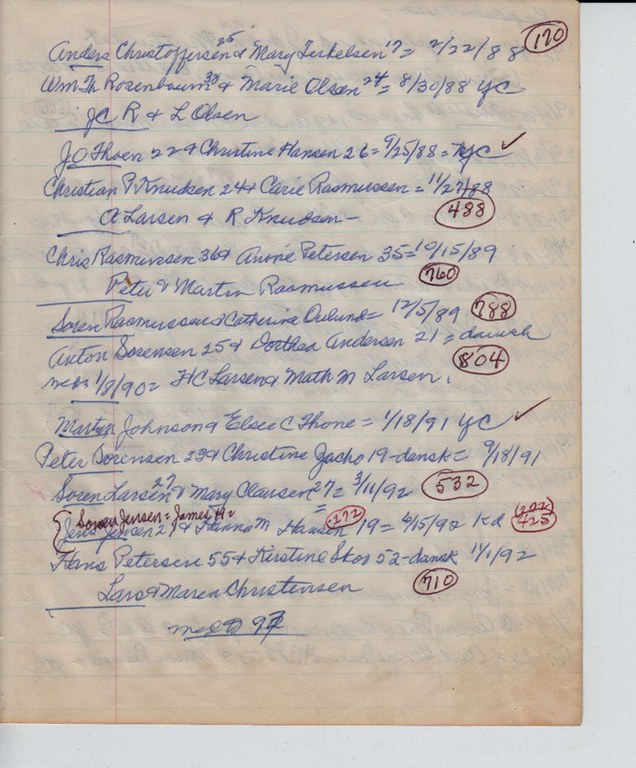 170
Anders Christoffersen 25 & Mary Terkelsen 17 = 2/22/88
Wm Th Rosenbaum 38 & Marie Olsen 24 = 8/30/88 YC
JC R & L Olsen
JO Thoen 22 & Christine Hansen 26 = 9/25/88 = YC ✓
Christian P Knudsen 24 & Carie Rasmussen = 11/27/88
A Larsen & R Knudsen — 488
Chris Rasmussen 36 & Annie Petersen 35 = 10/15/89
Peter & Martin Rasmussen 760
Soren Rasmussen & Catherine = 12/5/89 788
Anton Sorensen 25 & Dorthea Andersen 21 = danish
1/8/90 = HC Larsen & Math M Larsen. 804
Martin Johnson & Elsee C Thone = 1/18/91 YC ✓
Peter Sorensen 23 & Christine Jacho 19 - dansk = 9/18/91
Soren Larsen 27 & Mary Clausen 27 = 3/11/92 532
Soren Jensen = James H =
Jens Jensen 27 & Hanna M Hansen 272 19 = 6/15/92 Kd 272 425
Hans Petersen 55 & Kirstine Skov 52 - dansk 11/1/92
Lars & Maren Christensen 710